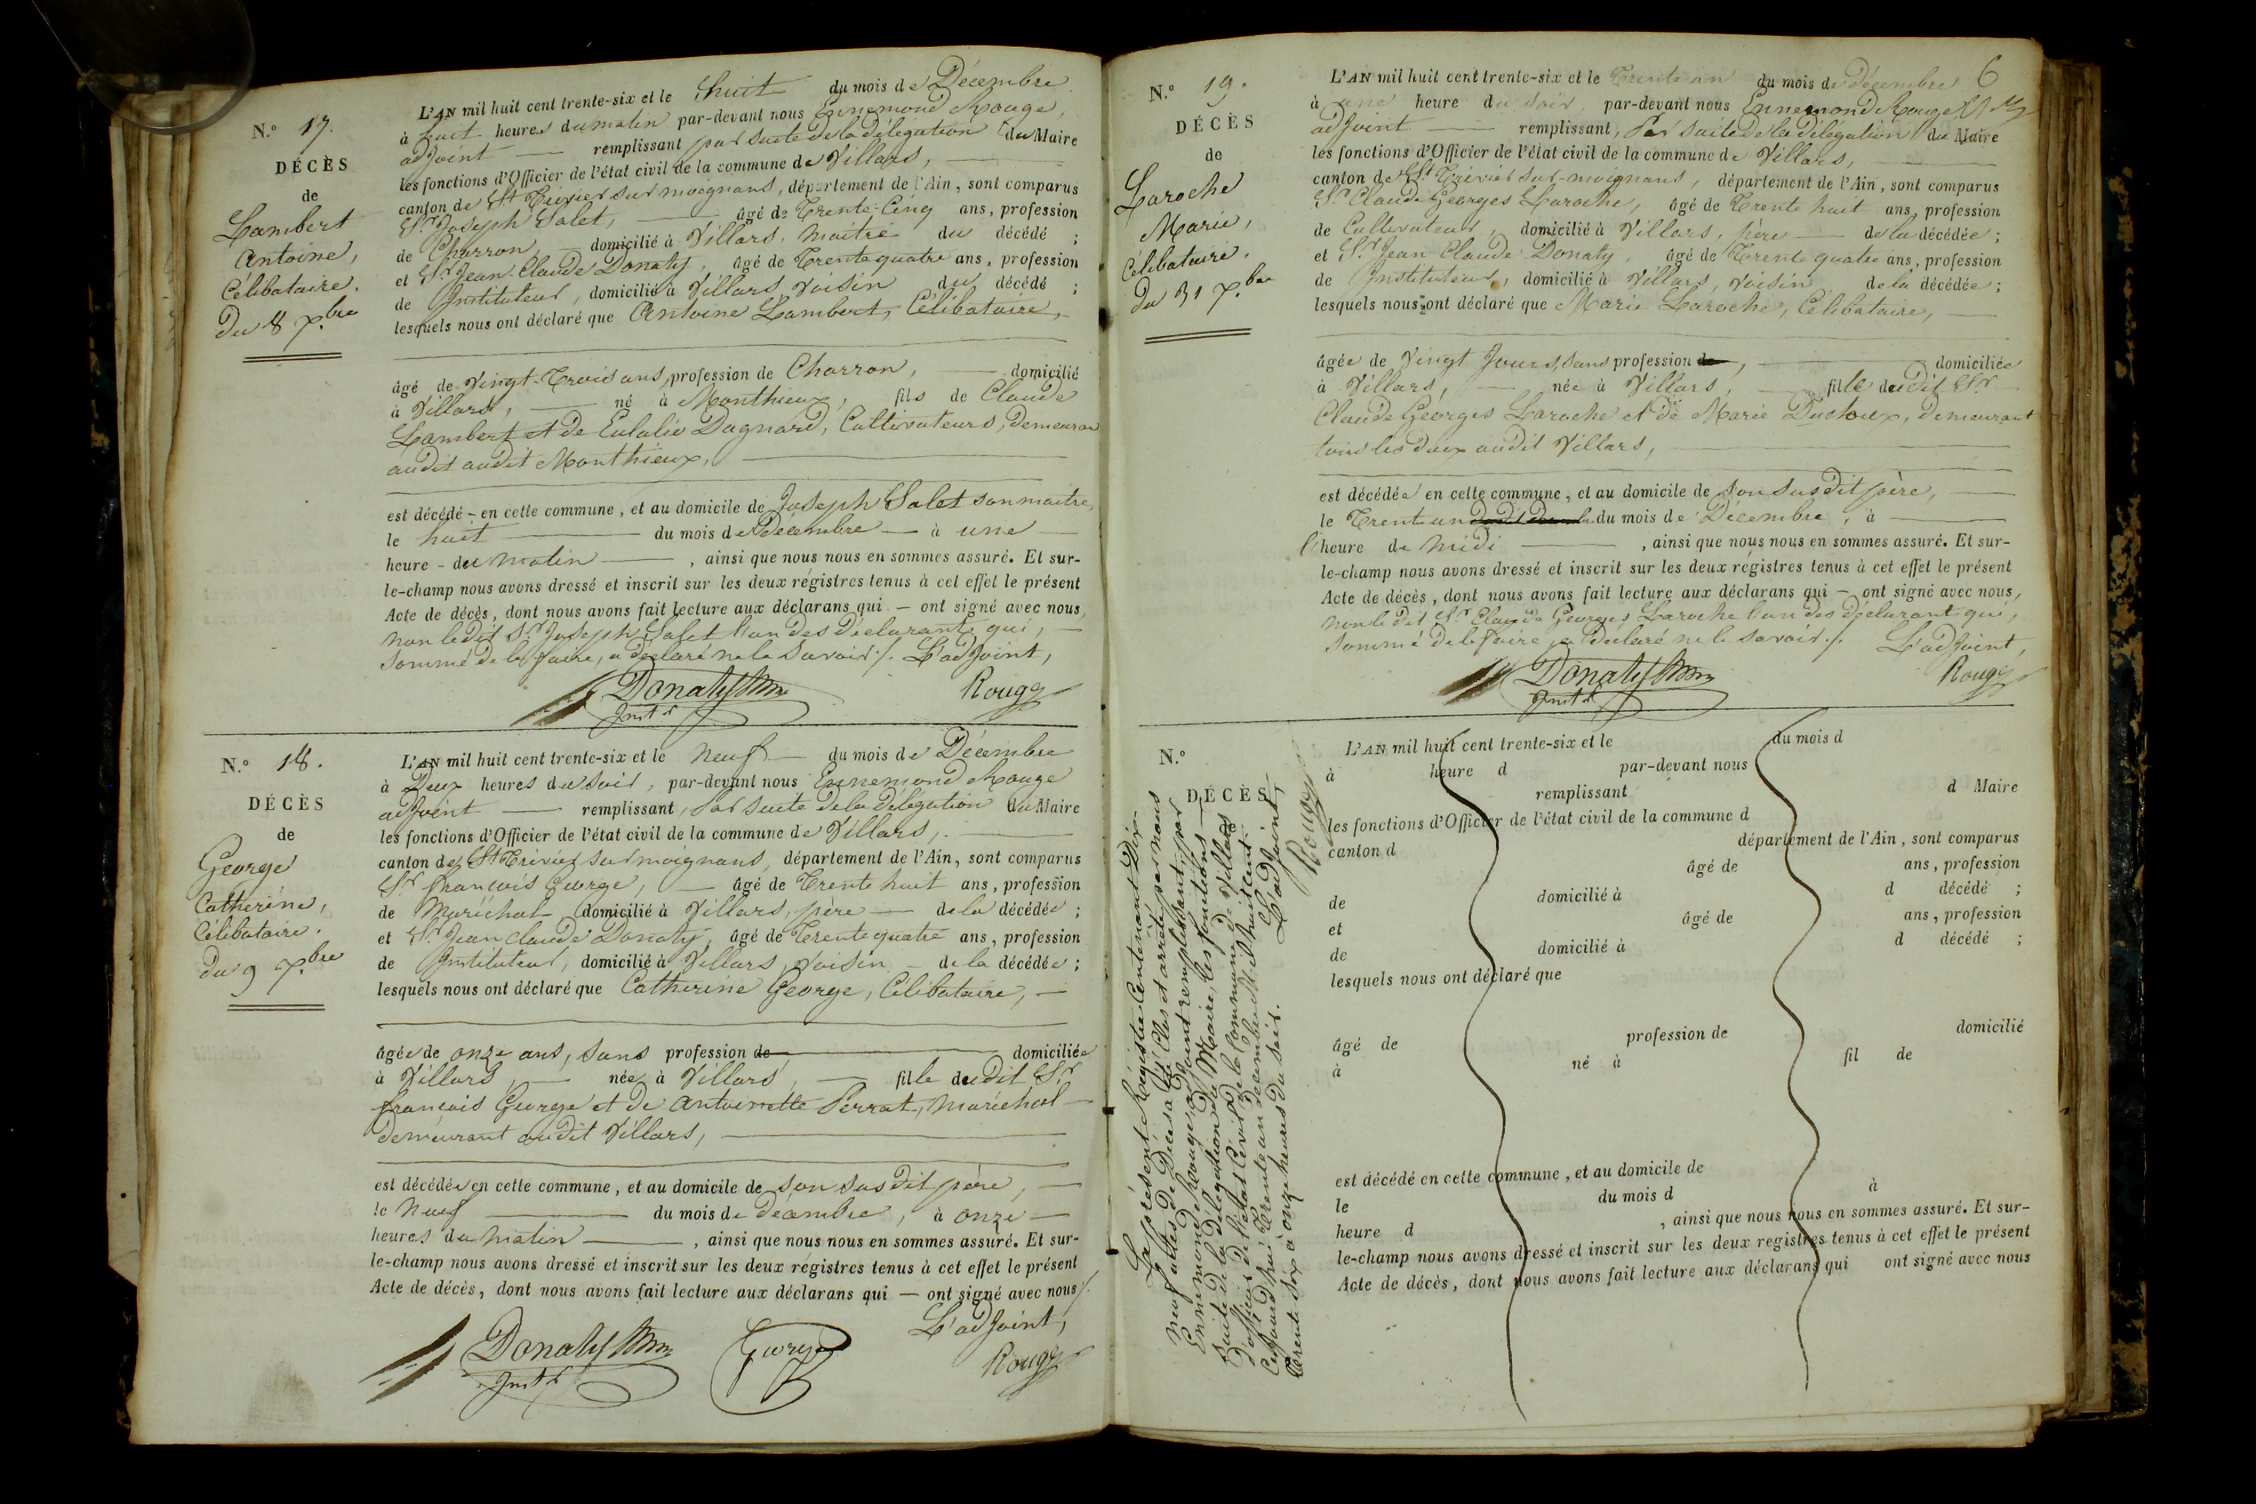 N.º 17.
DÉCÈS
de
Lambert
Antoine,
Célibataire.
Du 8 Xbre
L'AN mil huit cent trente-six et le huit du mois de Décembre
à huit heures du matin par-devant nous Ennemond Rouge,
adjoint remplissant par suite de la délégation du Maire
les fonctions d'Officier de l'état civil de la commune de Villars,
canton de St Trivier sur moignans, département de l'Ain, sont comparus
Sr. Joseph Salet, âgé de Trente-Cinq ans, profession
de Charron domicilié à Villars, maître du décédé ;
et Sr Jean Claude Donaty, âgé de Trente quatre ans, profession
de Instituteur, domicilié à Villars voisin du décédé ;
lesquels nous ont déclaré que Antoine Lambert, Célibataire,
âgé de Vingt-Trois ans, profession de Charron, domicilié
à Villars, né à Monthieux, fils de Claude
Lambert et de Eulalie Dagnard, Cultivateurs, demeuran
audit audit Monthieux,
est décédé en cette commune, et au domicile de Joseph Salet son maître,
le huit du mois de Décembre à une
heure du matin, ainsi que nous nous en sommes assuré. Et sur-
le-champ nous avons dressé et inscrit sur les deux régistres tenus à cet effet le présent
Acte de décès, dont nous avons fait lecture aux déclarans qui ont signé avec nous,
non le dit Sr Joseph Salet l'un des déclarants qui,
sommé de le faire, a déclaré ne le savoir ./. L'adjoint,
Donaty
Instr
Rouge
N.º 18.
DÉCÈS
de
George
Catherine,
Célibataire.
du 9 Xbre
L'AN mil huit cent trente-six et le neuf du mois de Décembre
à Deux heures du soir, par-devant nous Ennemond Rouge
adjoint remplissant, Par suite de la délégation du Maire
les fonctions d'Officier de l'état civil de la commune de Villars,
canton de St Trivier sur moignans, département de l'Ain, sont comparus
Sr. françois George, âgé de Trente huit ans, profession
de Maréchal domicilié à Villars, père de la décédée ;
et Sr Jean claude Donaty, âgé de Trente quatre ans, profession
de Instituteur, domicilié à Villars, voisin de la décédée ;
lesquels nous ont déclaré que Catherine George, Célibataire,
âgée de onze ans, sans profession de domiciliée
à Villars, née à Villars, fille du dit Sr
françois George et de Antoinette Perrat, maréchal
demeurant audit Villars,
est décédée en cette commune, et au domicile de son susdit père,
le neuf du mois de décembre, à onze
heures du matin, ainsi que nous nous en sommes assuré. Et sur-
le-champ nous avons dressé et inscrit sur les deux régistres tenus à cet effet le présent
Acte de décès, dont nous avons fait lecture aux déclarans qui ont signé avec nous ./.
L'adjoint,
Donaty
Instr
George
Rouge
6
N.º 19.
DÉCÈS
de
Laroche
Marie,
Célibataire.
Du 31 Xbre
L'AN mil huit cent trente-six et le Trente un du mois de décembre
à une heure du soir, par-devant nous Ennemond Rouge
adjoint remplissant, Par suite de la délégation du Maire
les fonctions d'Officier de l'état civil de la commune de Villars,
canton de St Trivier sur-moignans, département de l'Ain, sont comparus
Sr Claude Georges Laroche, âgé de Trente huit ans, profession
de Cultivateur, domicilié à Villars, père de la décédée ;
et Sr Jean Claude Donaty, âgé de Trente quatre ans, profession
de Instituteur, domicilié à Villars, voisin de la décédée ;
lesquels nous ont déclaré que Marie Laroche, Célibataire,
âgée de Vingt Jours, sans profession de, domiciliée
à Villars, née à Villars, fille du dit Sr
Claude Georges Laroche et de Marie demeurant
tous les deux audit Villars,
est décédée en cette commune, et au domicile de son susdit père,
le Trente un du mois de Décembre, à
l'heure de midi, ainsi que nous nous en sommes assuré. Et sur-
le-champ nous avons dressé et inscrit sur les deux régistres tenus à cet effet le présent
Acte de décès, dont nous avons fait lecture aux déclarans qui ont signé avec nous,
non le dit Sr Claude Georges Laroche l'un des déclarant qui,
sommé de le faire, a déclaré ne le savoir ./. L'adjoint,
Donaty
Instr
Rouge
N.º
DÉCÈS
Le présent Régistre Contenant Dix
neuf actes de Décès a été Clos et arrêté par nous
Ennemond Rouge adjoint remplissant, par
suite de la délégation du Maire, les fonctions
d'officier de l'état Civil de la Commune de Villars
Cejourd'hui Trente un decembre Mil huit cent
Trente Six à onze heures du soir.
L'adjoint,
Rouge
L'AN mil huit cent trente-six et le du mois d
à heure d par-devant nous
remplissant d Maire
les fonctions d'Officier de l'état civil de la commune d
canton d département de l'Ain, sont comparus
âgé de ans, profession
de domicilié à d décédé ;
et âgé de ans, profession
de domicilié à d décédé ;
lesquels nous ont déclaré que
âgé de profession de domicilié
à né à fil de
est décédé en cette commune, et au domicile de
le du mois d à
heure d , ainsi que nous nous en sommes assuré. Et sur-
le-champ nous avons dressé et inscrit sur les deux registres tenus à cet effet le présent
Acte de décès, dont nous avons fait lecture aux déclarans qui ont signé avec nous